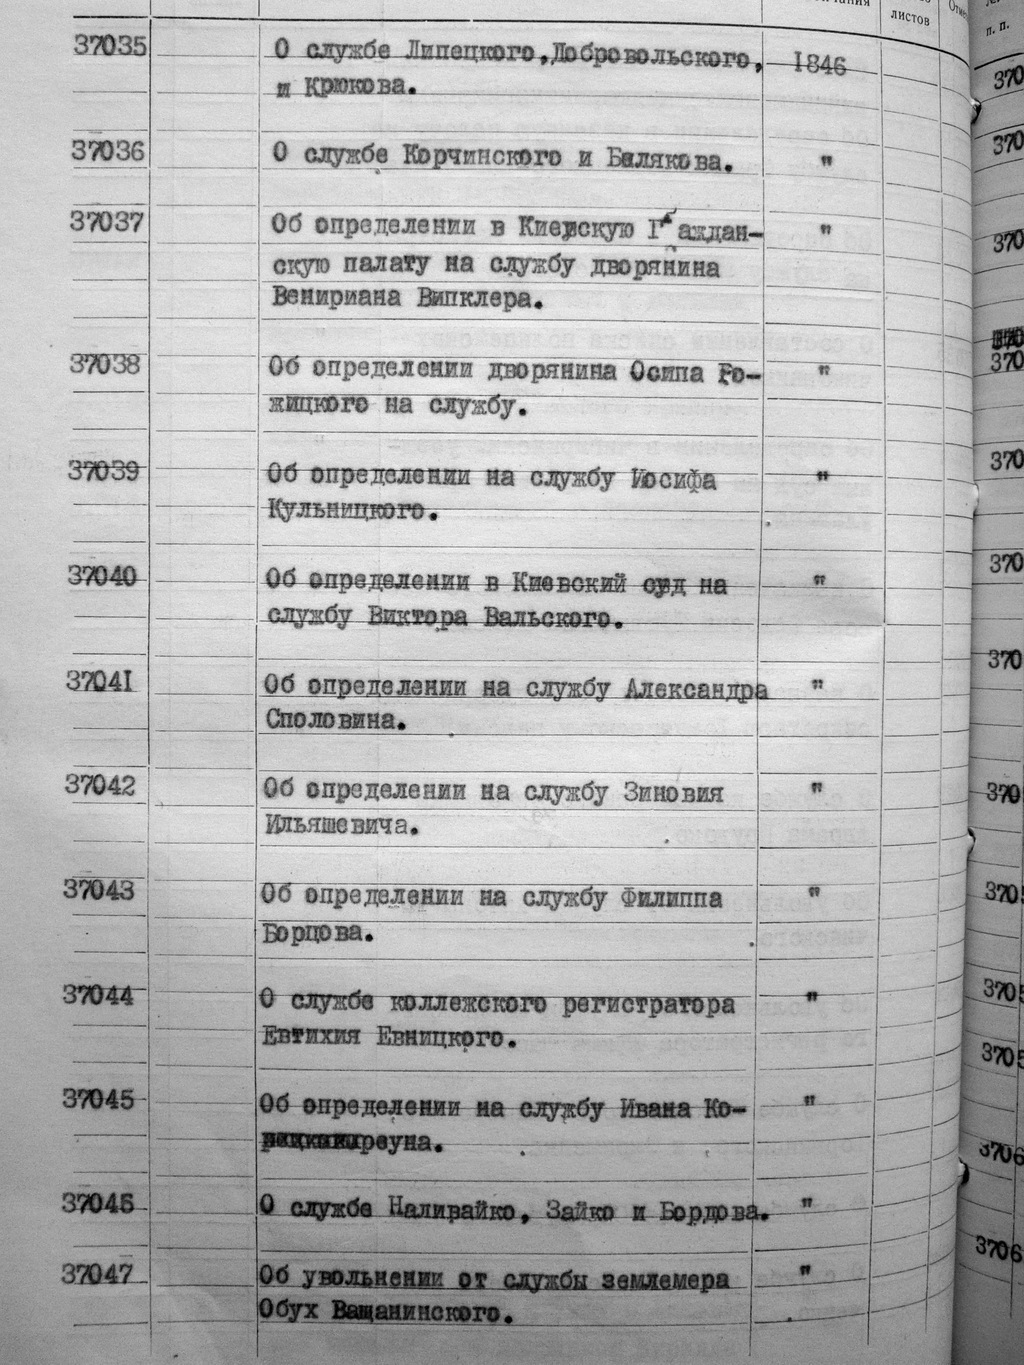 листов
п. п.
37035 О службе Липецкого, Добровольского, 1846
и Крюкова.
37036 О службе Корчинского и Балякова. "
37037 Об определении в Киевскую Граждан- "
скую палату на службу дворянина
Венириана Випклера.
37038 Об определении дворянина Осипа Ро- "
жицкого на службу.
37039 Об определении на службу Иосифа "
Кульницкого.
37040 Об определении в Киевский суд на "
службу Виктора Вальского.
37041 Об определении на службу Александра "
Споловина.
37042 Об определении на службу Зиновия "
Ильяшевича.
37043 Об определении на службу Филиппа "
Борцова.
37044 О службе коллежского регистратора "
Евтихия Евницкого.
37045 Об определении на службу Ивана Ко- "
реуна.
37046 О службе Наливайко, Зайко и Бордова. "
37047 Об увольнении от службы землемера "
Обух Ващанинского.